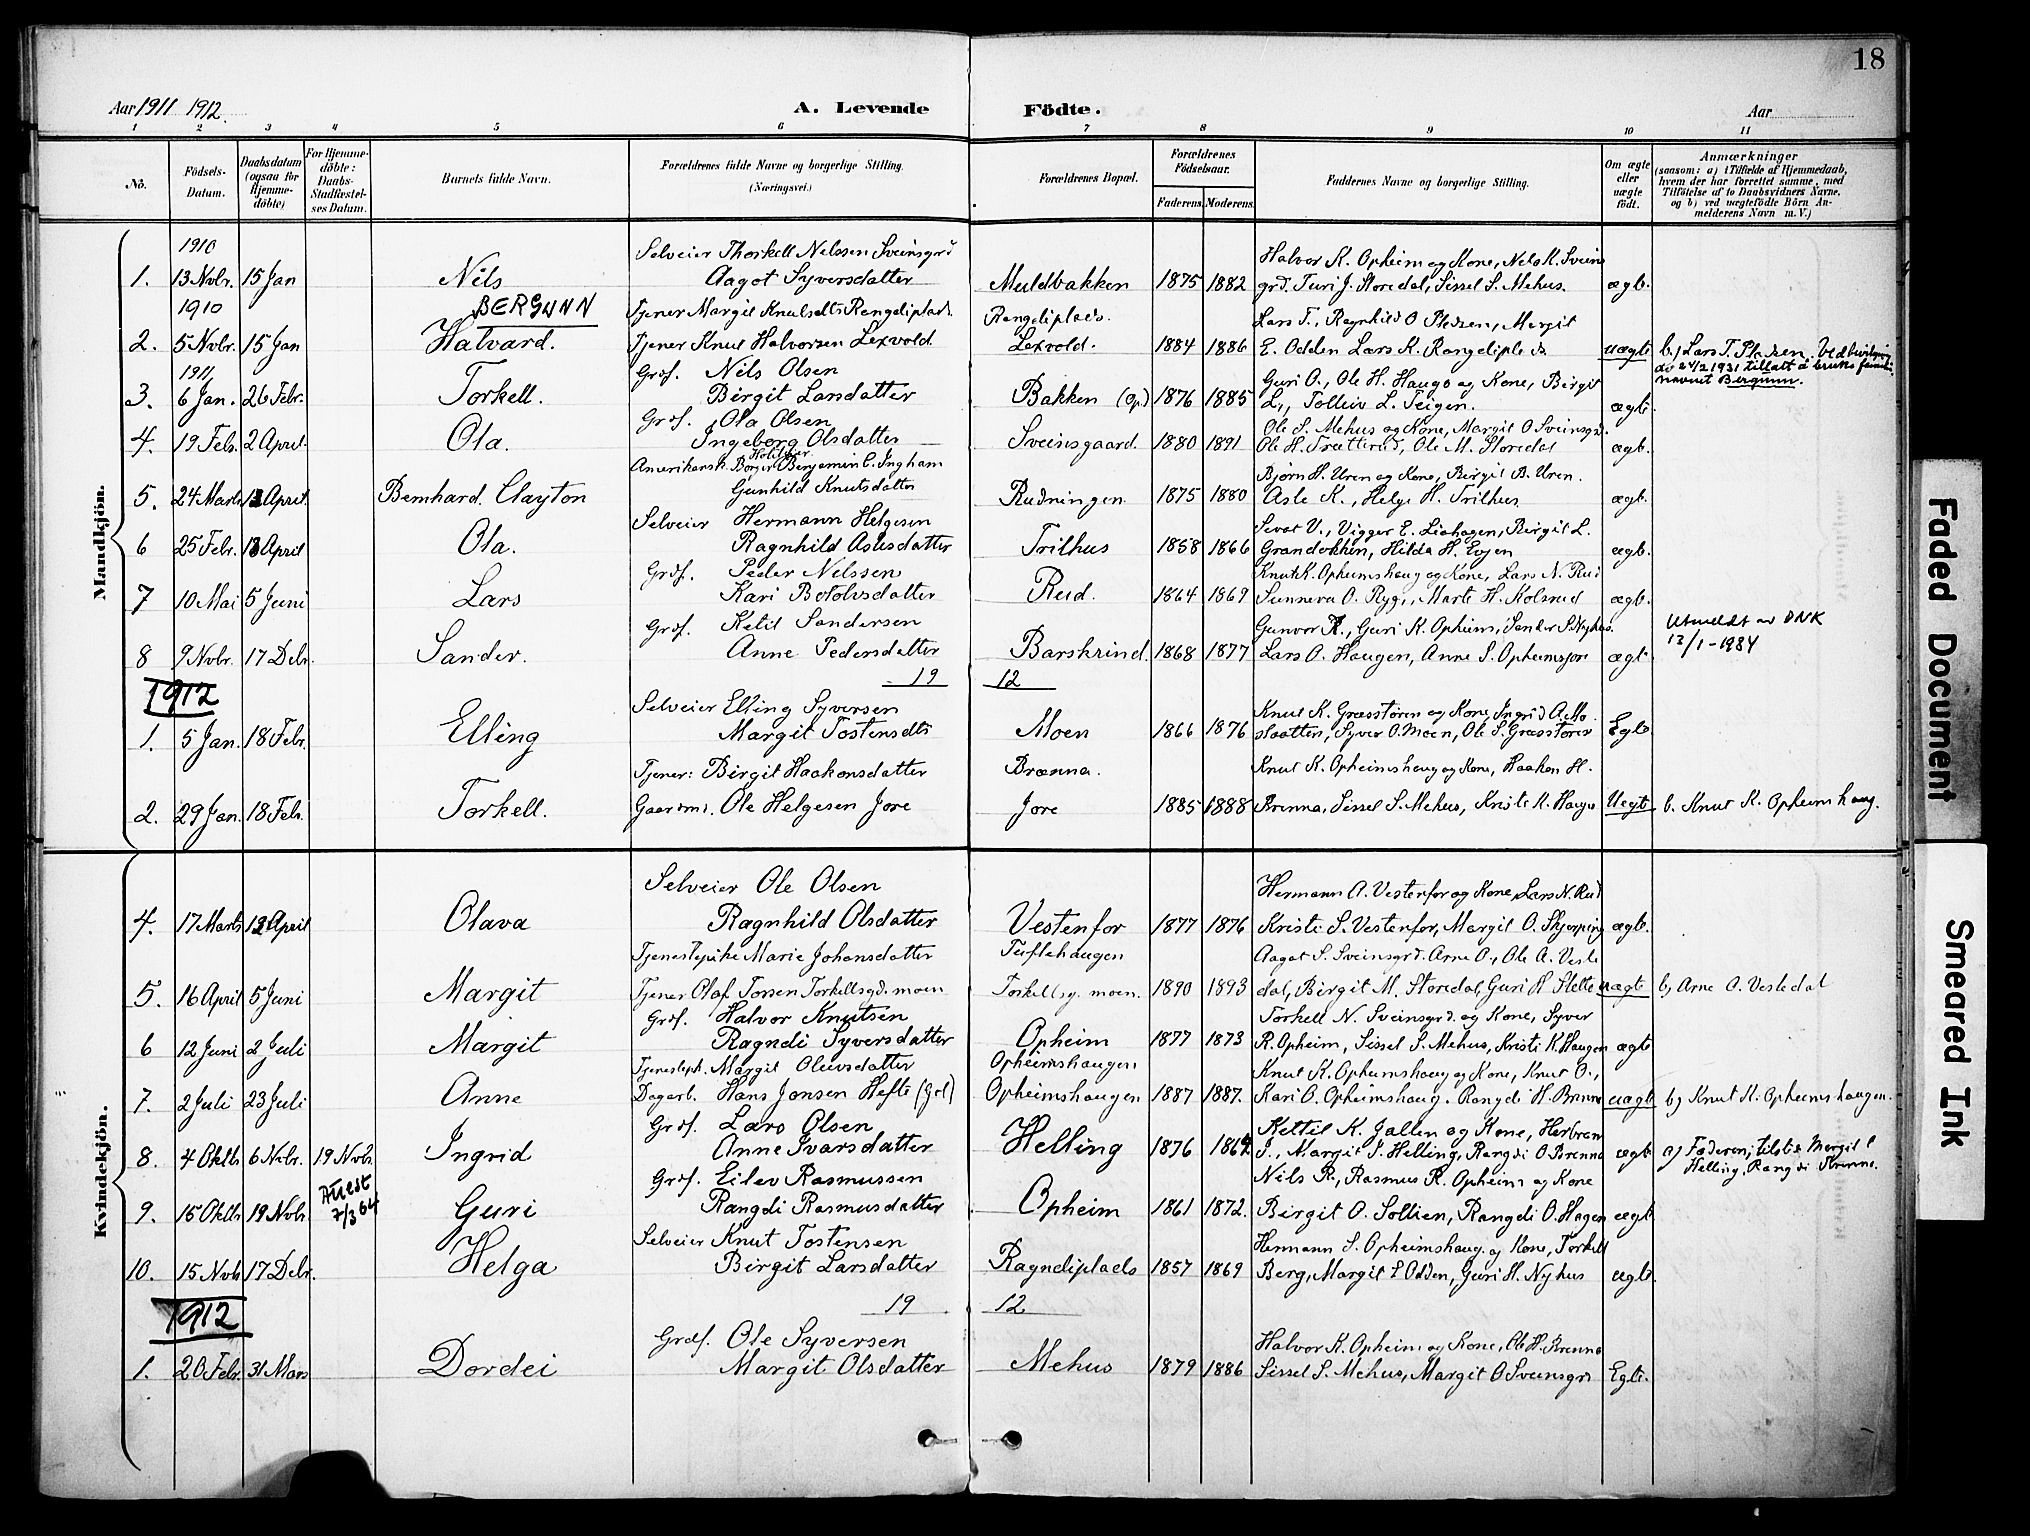 18
Aar 1911 1912.
A. Levende Födte.
Aar
1 2 3 4 5 6 7 8 9 10 11
Nö.
Födsels-Datum.
Daabsdatum (ogsaa for Hjemme-döbte)
For Hjemme-döbte: Daabs-Stadfæstel-ses Datum.
Barnets fulde Navn.
Forældrenes fulde Navne og borgerlige Stilling. (Næringsvei.)
Forældrenes Bopæl.
Forældrenes Födselsaar.
Faderens. Moderens.
Faddernes Navne og borgerlige Stilling.
Om ægte eller uægte födt.
Anmærkninger
(saasom: a) i Tilfælde af Hjemmedaab, hvem der har forrettet samme, med Tilföielse af to Daabsvidners Navne, og b) ved uægtefödte Börn An-melderens Navn m.V.)
Mandkjön.
1910
Selveier Thorkell Nelssen Sveinsgrd
Halvor K. Opheim og Kone, Nels K. Svein
1. 13 Novbr. 15 Jan Nils Aagot Syversdatter Muldbakken 1875 1882 grd. Turi J. Storedal, Sissel S. Mehus. ægte.
1910
BERGUNN
Tjener Margit Knutsdtr Rangdiplads.
Rangdiplads.
Lars T., Ragnhild O Pladsen, Margit
2. 5 Novbr. 15 Jan Halvard. Tjener Knut Halvorsen Lexvold Lexvold. 1884 1886 E. Odden Lars K. Rangdiplads uægte b.) Lars T. Pladsen. Ved bevilgning av 24/2 1931 tillatt å bruke familienavnet Bergunn.
1911
Grdf. Nils Olsen
Guri O., Ole H. Haugo og Kone, Birgit
3. 6 Jan. 26 Febr. Torkell. Birgit Larsdatter Bakken (Op.) 1876 1885 L., Tolleiv L. Teigen. ægte.
Grdf. Ola Olsen
Ole S. Mehus og Kone, Margit O Sveinsgrd.
4. 19 Febr. 2 April Ola. Ingeborg Olsdatter Sveinsgaard. 1880 1891 Ole H. Trætterud, Ole M. Storedal ægte.
Amerikansk Borger Benjamin C. Ingham
Bjørn H. Uren og Kone, Birgit B. Uren.
5. 24 Marts 13 April Bernhard Clayton Gunhild Knutsdatter Rudningen 1875 1880 Asle K., Helge H. Trilhus ægte.
Selveier Hermann Helgesen
Sevat V., Vigger E. Liahagen, Birgit L.
6 25 Febr. 13 April Ola. Ragnhild Aslesdatter Trilhus 1858 1866 Grandokken, Hilda H. Evjen ægte.
Grdf. Peder Nilssen
Knut K. Opheimshaug og Kone, Lars N. Rud
7 10 Mai 5 Juni Lars Kari Botolvsdatter Rud. 1864 1869 Sunneva O. Rygi, Marte H. Kolsrud ægte.
Grdf. Ketil Sandersen
Gunvor K., Guri K. Opheim, Sander S. Nyhus.
Utmeldt av DNK 12/1-1984
8 9 Novbr. 17 Debr. Sander. Anne Pedersdatter Barskrind. 1868 1877 Lars O. Haugen, Anne S. Opheimsjore ægte.
1912
19 12
Selveier Elling Syversen
Knut K. Græsstøren og Kone, Ingrid A Mo
1. 5 Jan. 18 Febr. Elling Margit Tostensdtr Moen 1866 1876 slaatten, Syver O. Moen, Ole S. Græsstøren Egte
Tjener: Birgit Haakonsdatter
Brænna.
Knut K. Opheimshaug og Kone, Haakon H.
2. 29 Jan. 18 Febr. Torkell. Gaardm. Ole Helgesen Jore Jore 1885 1888 Brenna, Sissel S. Mehus, Kristi K. Haugo Uegte b. Knut K. Opheimshaug.
Kvindekjön.
Selveier Ole Olsen
Hermann A. Vestenfor og Kone, Lars N. Rud
4. 17 Marts 13 April Olava Ragnhild Olsdatter Vestenfor 1877 1876 Kristi S. Vestenfor, Margit O. Skjerping ægte.
Tjenestepike Marie Johansdatter
Tuftehaugen
Aagot S. Sveinsgrd. Arne O., Ole A. Vesle
5. 16 April 5 Juni Margit Tjener Olaf Torsen Torkellsgd. moen Torkellsg. moen. 1890 1893 dal, Birgit M. Storedal, Guri H Slette uægte b) Arne O. Vesledal
Grdf. Halvor Knutsen
Torkell N. Sveinsgrd. og Kone, Syver
6 12 Juni 2 Juli Margit Ragndi Syversdatter Opheim 1877 1873 R. Opheim, Sissel S. Mehus, Kristi K. Haugen ægte
Tjenestepk. Margit Oleivsdatter
Opheimshaugen
Knut K. Opheimshaug og Kone, Knut O.,
7. 2 Juli 23 Juli Anne Dagarb. Hans Jonsen Hefte (Gol) Opheimshaugen 1887 1887. Kari O. Opheimshaug. Rangdi H. Brenna uægte b) Knut K. Opheimshaugen.
Grdf. Lars Olsen
Kettil K. Jallen og Kone, Herbran
8. 4 Oktbr 6 Nvbr. 19 Novb. Ingrid Anne Ivarsdatter Helling 1876 1864 J., Margit J. Helling, Rangdi O Brenna ægte a) Faderen, tilst. Margit Helling, Rangdi Brenna.
Attest 7/3 64
Grdf. Eilev Rasmussen
Nils R., Rasmus R. Opheim og Kone
9. 15 Oktbr 19 Novbr. Guri Rangdi Rasmusdatter Opheim 1861 1872. Birgit O. Sollien, Rangdi O. Hagen ægte
Selveier Knut Tostensen
Hermann S. Opheimshaug. og Kone, Torkell
10. 15 Novbr 17 Debr. Helga Birgit Larsdatter Ragndiplads 1857 1869 Berg, Margit E Odden, Guri H. Nyhus ægte.
1912
19 12
Grdf. Ole Syversen
Halvor K. Opheim og Kone, Ole H. Brenna
1. 20 Febr. 31 Mars Dordei Margit Olsdatter Mehus 1879 1886 Sissel S. Mehus, Margit O Sveinsgrd Egte.
Faded Document
Smeared Ink